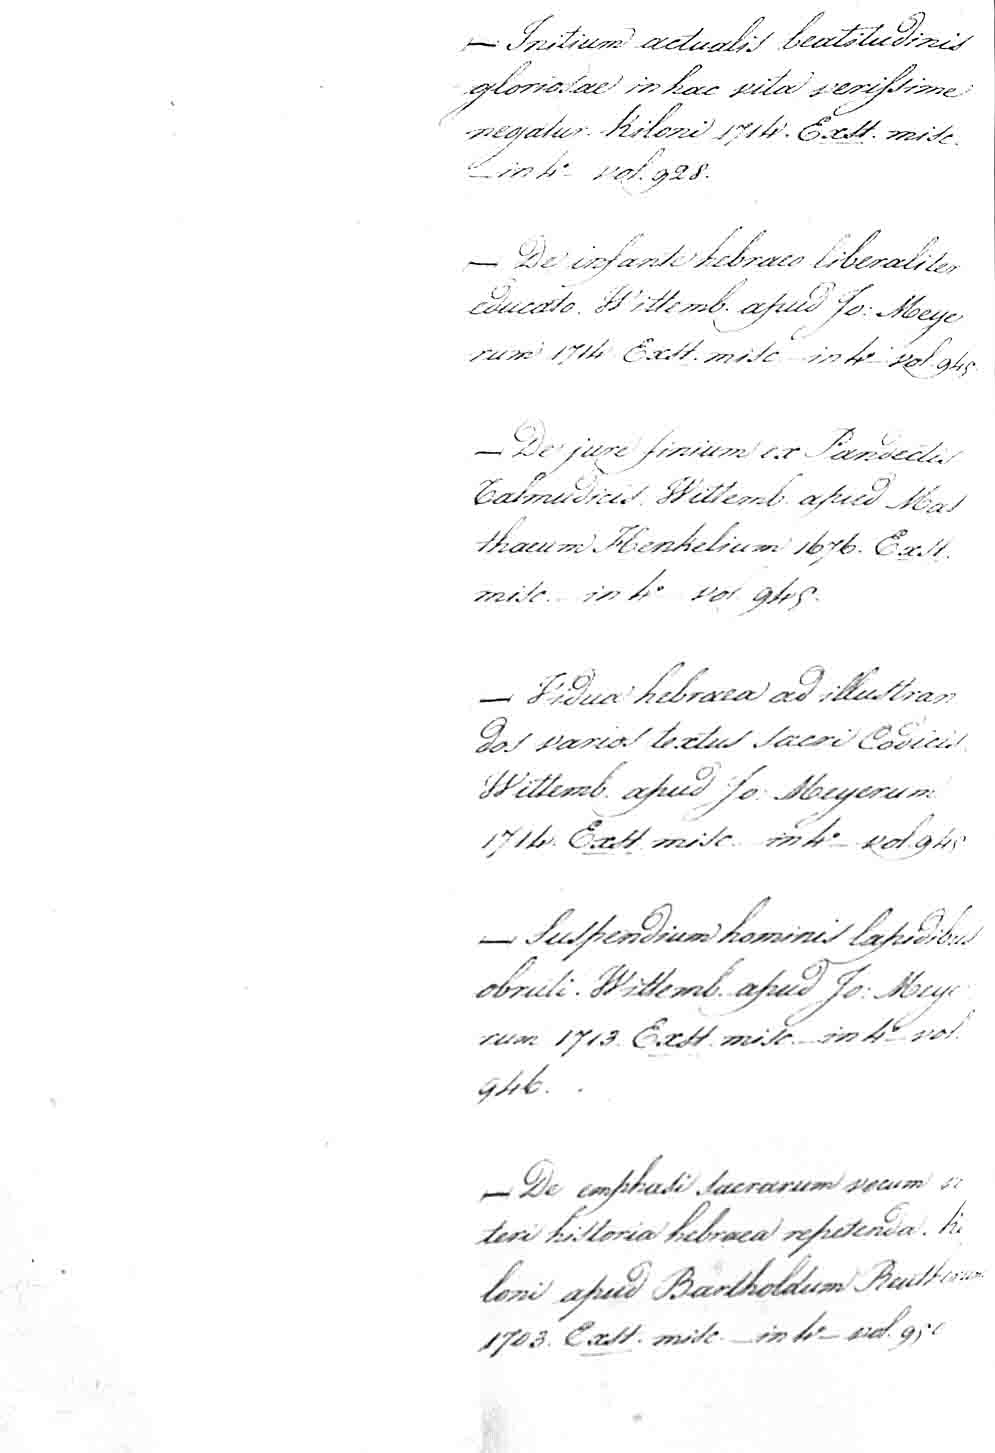 — Initium actualis beatitudinis
gloriosae in hac vita verissime
negatur. Kiloni 1714. Exst. misc.
— in 4° — vol. 928.
— De infante hebraeo liberaliter
educato. Wittemb. apud Jo: Meye
rum 1714 Exst. misc — in 4° — vol. 945
— De jure finium ex Pandectis
Talmudicis. Wittemb. apud Mat
thaeum Henkelium 1676. Exst.
misc. — in 4° vol 945.
— Vidua hebraea ad illustran
dos varios textus sacri Codicis.
Wittemb. apud Jo: Meyerum
1714. Exst. misc. — in 4° — vol. 945
— Suspendium hominis lapidibus
obruti. Wittemb. apud Jo: Meye
rum 1713. Exst. misc. — in 4° — vol.
946.
— De emphasi sacrarum vocum
teri historia hebraea repetenda. Ki
loni apud Bartholdum Reutherum
1703. Exst. misc. — in 4° — vol.